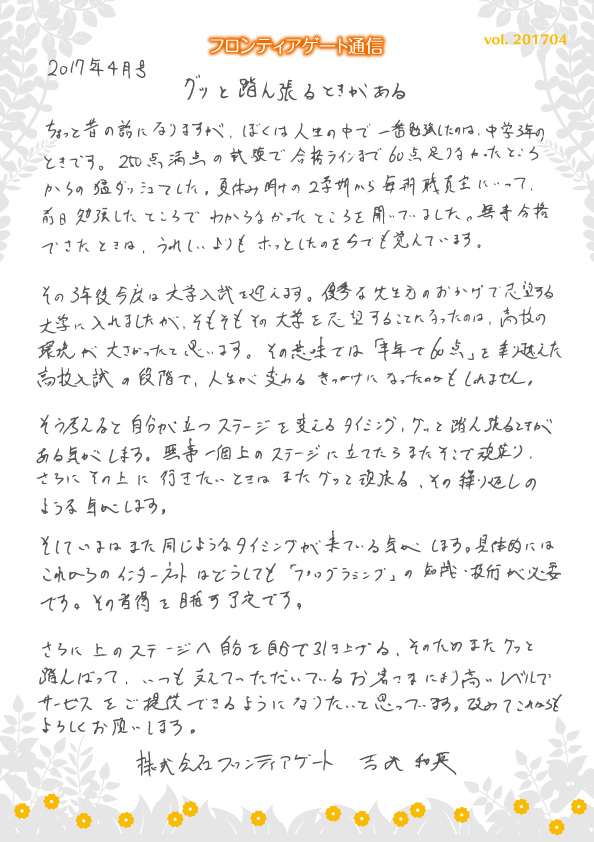 フロンティアゲート通信
vol. 201704
2017年4月号
グッと踏ん張るときがある
ちょっと昔の話になりますが、ぼくは人生の中で一番勉強したのは、中学3年の
ときです。250点満点の試験で合格ラインまで60点足りなかったところ
からの猛ダッシュでした。夏休み明けの2学期から毎朝職員室にいって、
前日勉強したところでわからなかったところを聞いていました。無事合格
できたときは、うれしいよりもホッとしたのを今でも覚えています。
その3年後今度は大学入試を迎えます。優秀な先生方のおかげで志望する
大学に入れましたが、そもそもその大学を志望することになったのは、高校の
環境が大きかったと思います。その意味では「半年で60点」を乗り越えた
高校入試の段階で、人生が変わるきっかけになったのかもしれません。
そう考えると自分が立つステージを変えるタイミング、グッと踏ん張るときが
ある気がします。無事一個上のステージに立てたらまたそこで頑張り、
さらにその上に行きたいときはまたグッと頑張る、その繰り返しの
ような気がします。
そしていまはまた同じようなタイミングが来ている気がします。具体的には
これからのインターネットはどうしても「プログラミング」の知識・技術が必要
です。その習得を目指す予定です。
さらに上のステージへ自分を自分で引き上げる、そのためまたグッと
踏んばって、いつも支えていただいているお客さまにより高いレベルで
サービスをご提供できるようになりたいと思っています。改めてこれからも
よろしくお願いします。
株式会社フロンティアゲート 吉